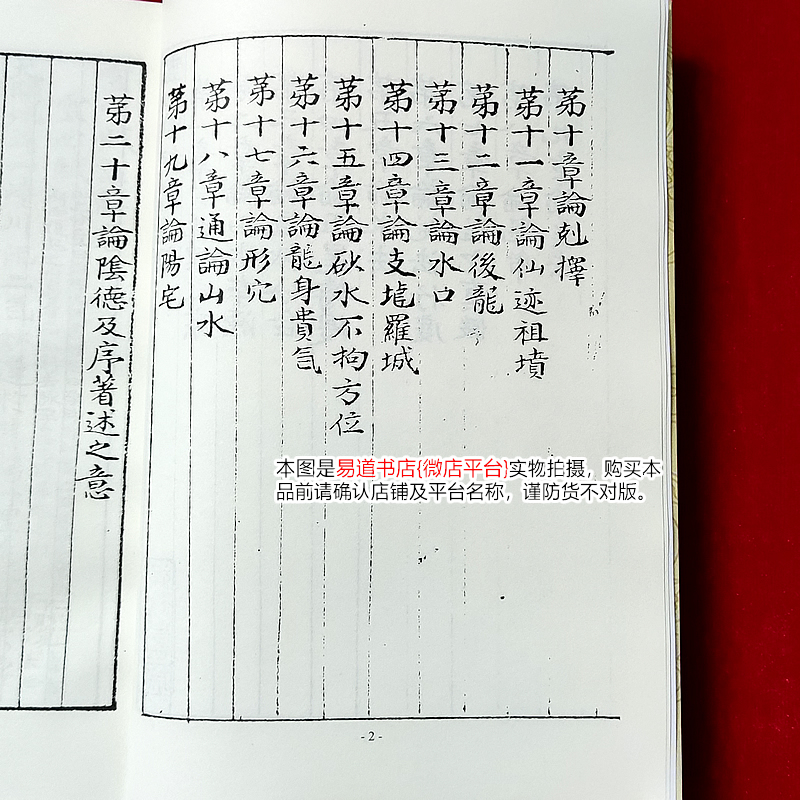 第十章論剋擇
第十一章論仙迹祖墳
第十二章論後龍
第十三章論水口
第十四章論支壠羅城
第十五章論砂水不拘方位
第十六章論龍身貴氣
第十七章論形穴
第十八章通論山水
第十九章論陽宅
第二十章論陰德及序著述之意
本图是易道书店(微店平台)实物拍摄，购买本
品前请确认店铺及平台名称，谨防货不对版。
- 2 -